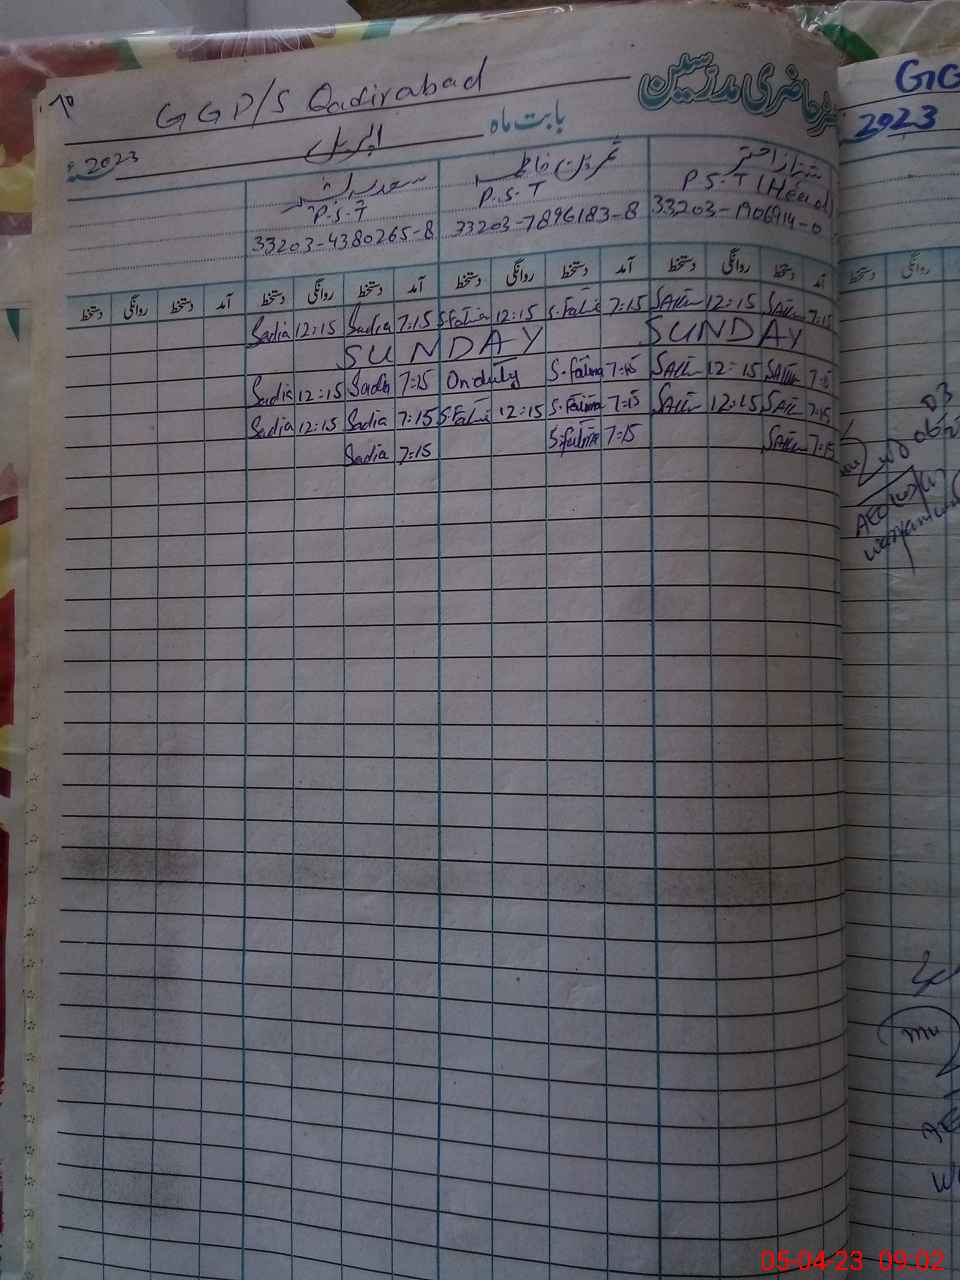 G G P/S Qadirabad
حاضری مدرسین
GG
2023
بابت ماہ
اپریل
2023ء
شہناز اختر
P.S.T (Head)
ثمرین فاطمہ
P.S.T
33203-7896183-8
سعدیہ
P.S.T
33203-4380265-8
آمد دستخط روانگی دستخط آمد دستخط روانگی دستخط آمد دستخط روانگی دستخط آمد دستخط روانگی دستخط
روانگی دستخط
Sadia 12:15 Sadia 7:15 S.Fatima 12:15 S.Fatima 7:15 SAkh 12:15 SAkh 7:15
SUNDAY SUNDAY
Sadia 12:15 Sadia 7:15 On duty S.Fatima 7:15 SAkh 12:15 SAkh 7:15
Sadia 12:15 Sadia 7:15 S.Fatima 12:15 S.Fatima 7:15 SAkh 12:15 SAkh 7:15
Sadia 7:15 S.Fatima 7:15 SAkh 7:15
03
AEO (W)
mu
05-04-23 09:02